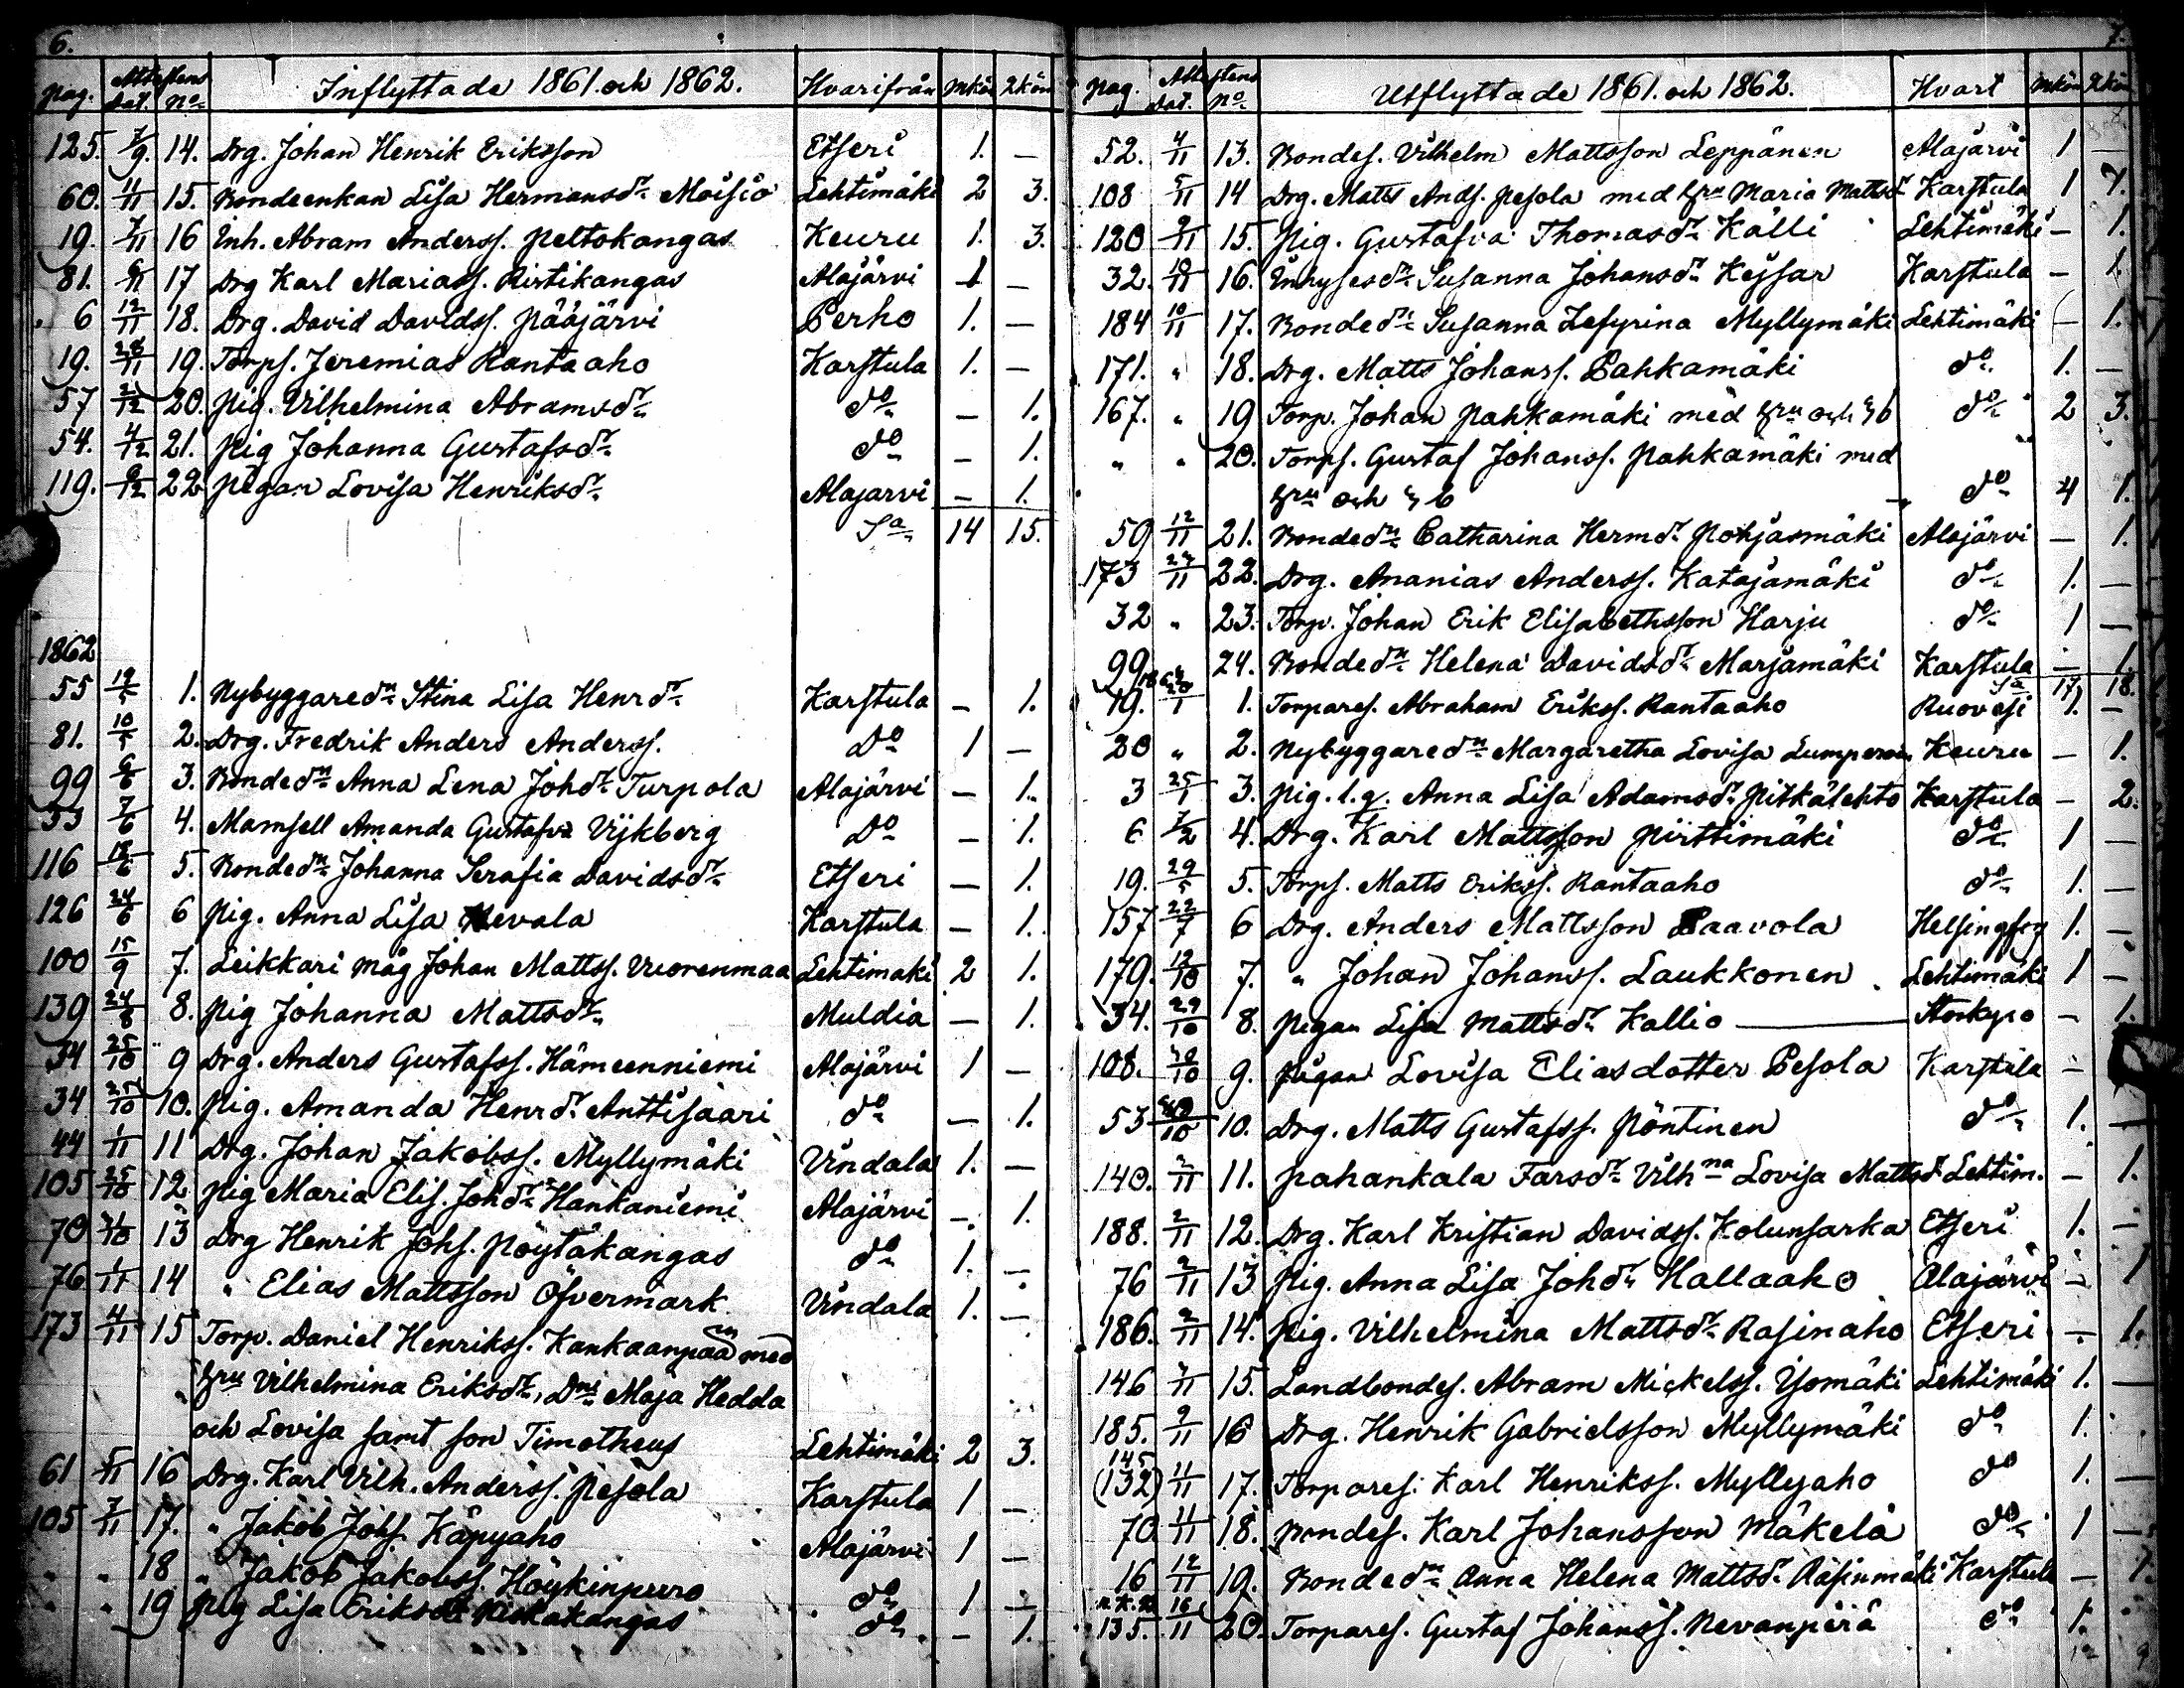 6.
pag. Attestens dat. No Inflyttade 1861. och 1862. Hvarifrån Mkön Qkön
125. 7/9. 14. Drg. Johan Henrik Eriksson Etseri 1. —
60. 11/11 15. Bondeenkan Lisa Hermansdr Moisio Lehtimäki 2 3.
19. 7/11 16 Inh. Abram Anderss. Peltokangas Keuru 1. 3.
81. 17 Drg Karl Mariass. Ristikangas Alajärvi 1 —
6 12/11 18. Drg. David Davidss. Pääjärvi Perho 1. —
19. 28/11 19. Torps. Jeremias Rantaaho Karstula 1. —
57 2/12 20. Pig. Vilhelmina Abramsdr do — 1.
54. 4/12 21. Pig Johanna Gustafsdr do — 1.
119. 22 Pigan Lovisa Henriksdr Alajarvi — 1.
Sa 14 15.
1862
55 19/5 1. Nybyggaredr Stina Lisa Henrdr Karstula — 1.
81. 10/5 2. Drg. Fredrik Anders Anderss. Do 1 —
99 6/6 3. Bondedr Anna Lena Johdr Turpola Alajärvi — 1.
53 7/6 4. Mamsell Amanda Gustafva Vijkberg Do — 1.
116 18/6 5. Bondedr Johanna Serafia Davidsdr Etseri — 1.
126 24/6 6 Pig. Anna Lisa Nevala Karstula — 1.
100 15/9 7. Leikkari måg Johan Matts. Vuorenmaa Lehtimaki 2 1.
139 24/8 8. Pig Johanna Mattsdr Muldia — 1.
34 25/10 9 Drg. Anders Gustafss. Hämeenniemi Alajärvi 1 —
34 25/10 10. Pig. Amanda Henrdr Anttisaari do — 1.
44 1/11 11 Drg. Johan Jakobss. Myllymäki Vindala 1. —
105 25/10 12 Pig Maria Elis. Johdr Hankaniemi Alajärvi — 1.
70 31/10 13 Drg Henrik Johs. Pöytäkangas do 1. —
76 1/11 14 " Elias Mattsson Öfvermark Vindala 1. —
173 4/11 15 Torp. Daniel Henrikss. Kankaanpää med
hru Vilhelmina Eriksdr, Dni Maja Hedda
och Lovisa samt son Timotheus Lehtimäki 2 3.
61 5/11 16 Drg. Karl Vilh. Anderss. Pesola Karstula 1 —
105 7/11 17. " Jakob Johs. Käpyaho Alajärvi 1 —
" " 18 " Jakob Jakobss. Höykinpuro do 1 —
" " 19 Pig Lisa Eriksdr do — 1.
7.
pag. Attestens dat. No Utflyttade 1861. och 1862. Hvart Mkön Qkön
52. 4/11 13. Bondes. Vilhelm Mattsson Leppänen Alajärvi 1 —
108 5/11 14 Drg. Matts Ands. Pesola med hru Maria Mattsdr Karstula 1 1.
120 9/11 15. Pig. Gustafva Thomasdr Källi Lehtimäki — 1.
32. 10/11 16. Inhysesdr Susanna Johansdr Kejsar Karstula — 1.
184 10/11 17. Bondedr Susanna Zefyrina Myllymäki Lehtimäki — 1.
171. " 18. Drg. Matts Johanss. Pahkamäki do 1. —
167. " 19 Torp. Johan Pahkamäki med hru och 4 b do 2 3.
" " 20. Torps. Gustaf Johanss. Pahkamäki med
hru och 4 b do 4 1.
59 12/11 21. Bondedr Catharina Hermdr Pohjasmäki Alajärvi — 1.
173 24/11 22. Drg. Ananias Anderss. Katajamäki do 1. —
32 " 23. Torp. Johan Erik Elisabethsson Harju do 1 —
99 24. Bondedr Helena Davidsdr Marjamäki Karstula — 1.
Sa 17 18.
1862
19. 20/1 1. Torpares. Abraham Erikss. Rantaaho Ruovesi 1. —
20 " 2. Nybyggaredr Margaretha Lovisa Lumperoin Keuru — 1.
3 25/1 3. Pig. l. q. Anna Lisa Adamsdr Pitkälehto Karstula — 2.
6 7/2 4. Drg. Karl Mattsson Pirttimäki do 1 —
19. 29/5 5. Torps. Matts Erikss. Rantaaho do 1. —
157 22/7 6 Drg. Anders Mattsson Paavola Helsingfors 1. —
179. 12/10 7. " Johan Johanss. Laukkonen Lehtimäki 1 —
34. 29/10 8. Pigan Lisa Mattsdr Kallio Storkyro — 1.
108. 30/10 9. Pigan Lovisa Eliasdotter Pesola Karstula —
53 10. Drg. Matts Gustafss. Pöntinen do 1. —
140. 2/11 11. Pahankala Farsdr Vilhna Lovisa Mattsdr Lehtim. — 1.
188. 2/11 12. Drg. Karl Kristian Davidss. Kolunsarka Etseri 1. —
76 2/11 13 Pig. Anna Lisa Johdr Hallaaho Alajärvi — 1
186. 2/11 14. Pig. Vilhelmina Mattsdr Rasinaho Etseri — 1.
146 15. Landbondes. Abram Mickelss. Ysomäki Lehtimäki 1. —
185. 9/11 16 Drg. Henrik Gabrielsson Myllymäki do 1.
145
(132) 11/11 17. Torpares. Karl Henrikss. Myllyaho do 1. —
70 11/11 18. Bondes. Karl Johansson Mäkelä do 1 —
16 12/11 19. Bondedr Anna Helena Mattsdr Rasinmäki Karstula — 1.
135. 16/11 20. Torpares. Gustaf Johanss. Nevanperä do 1.